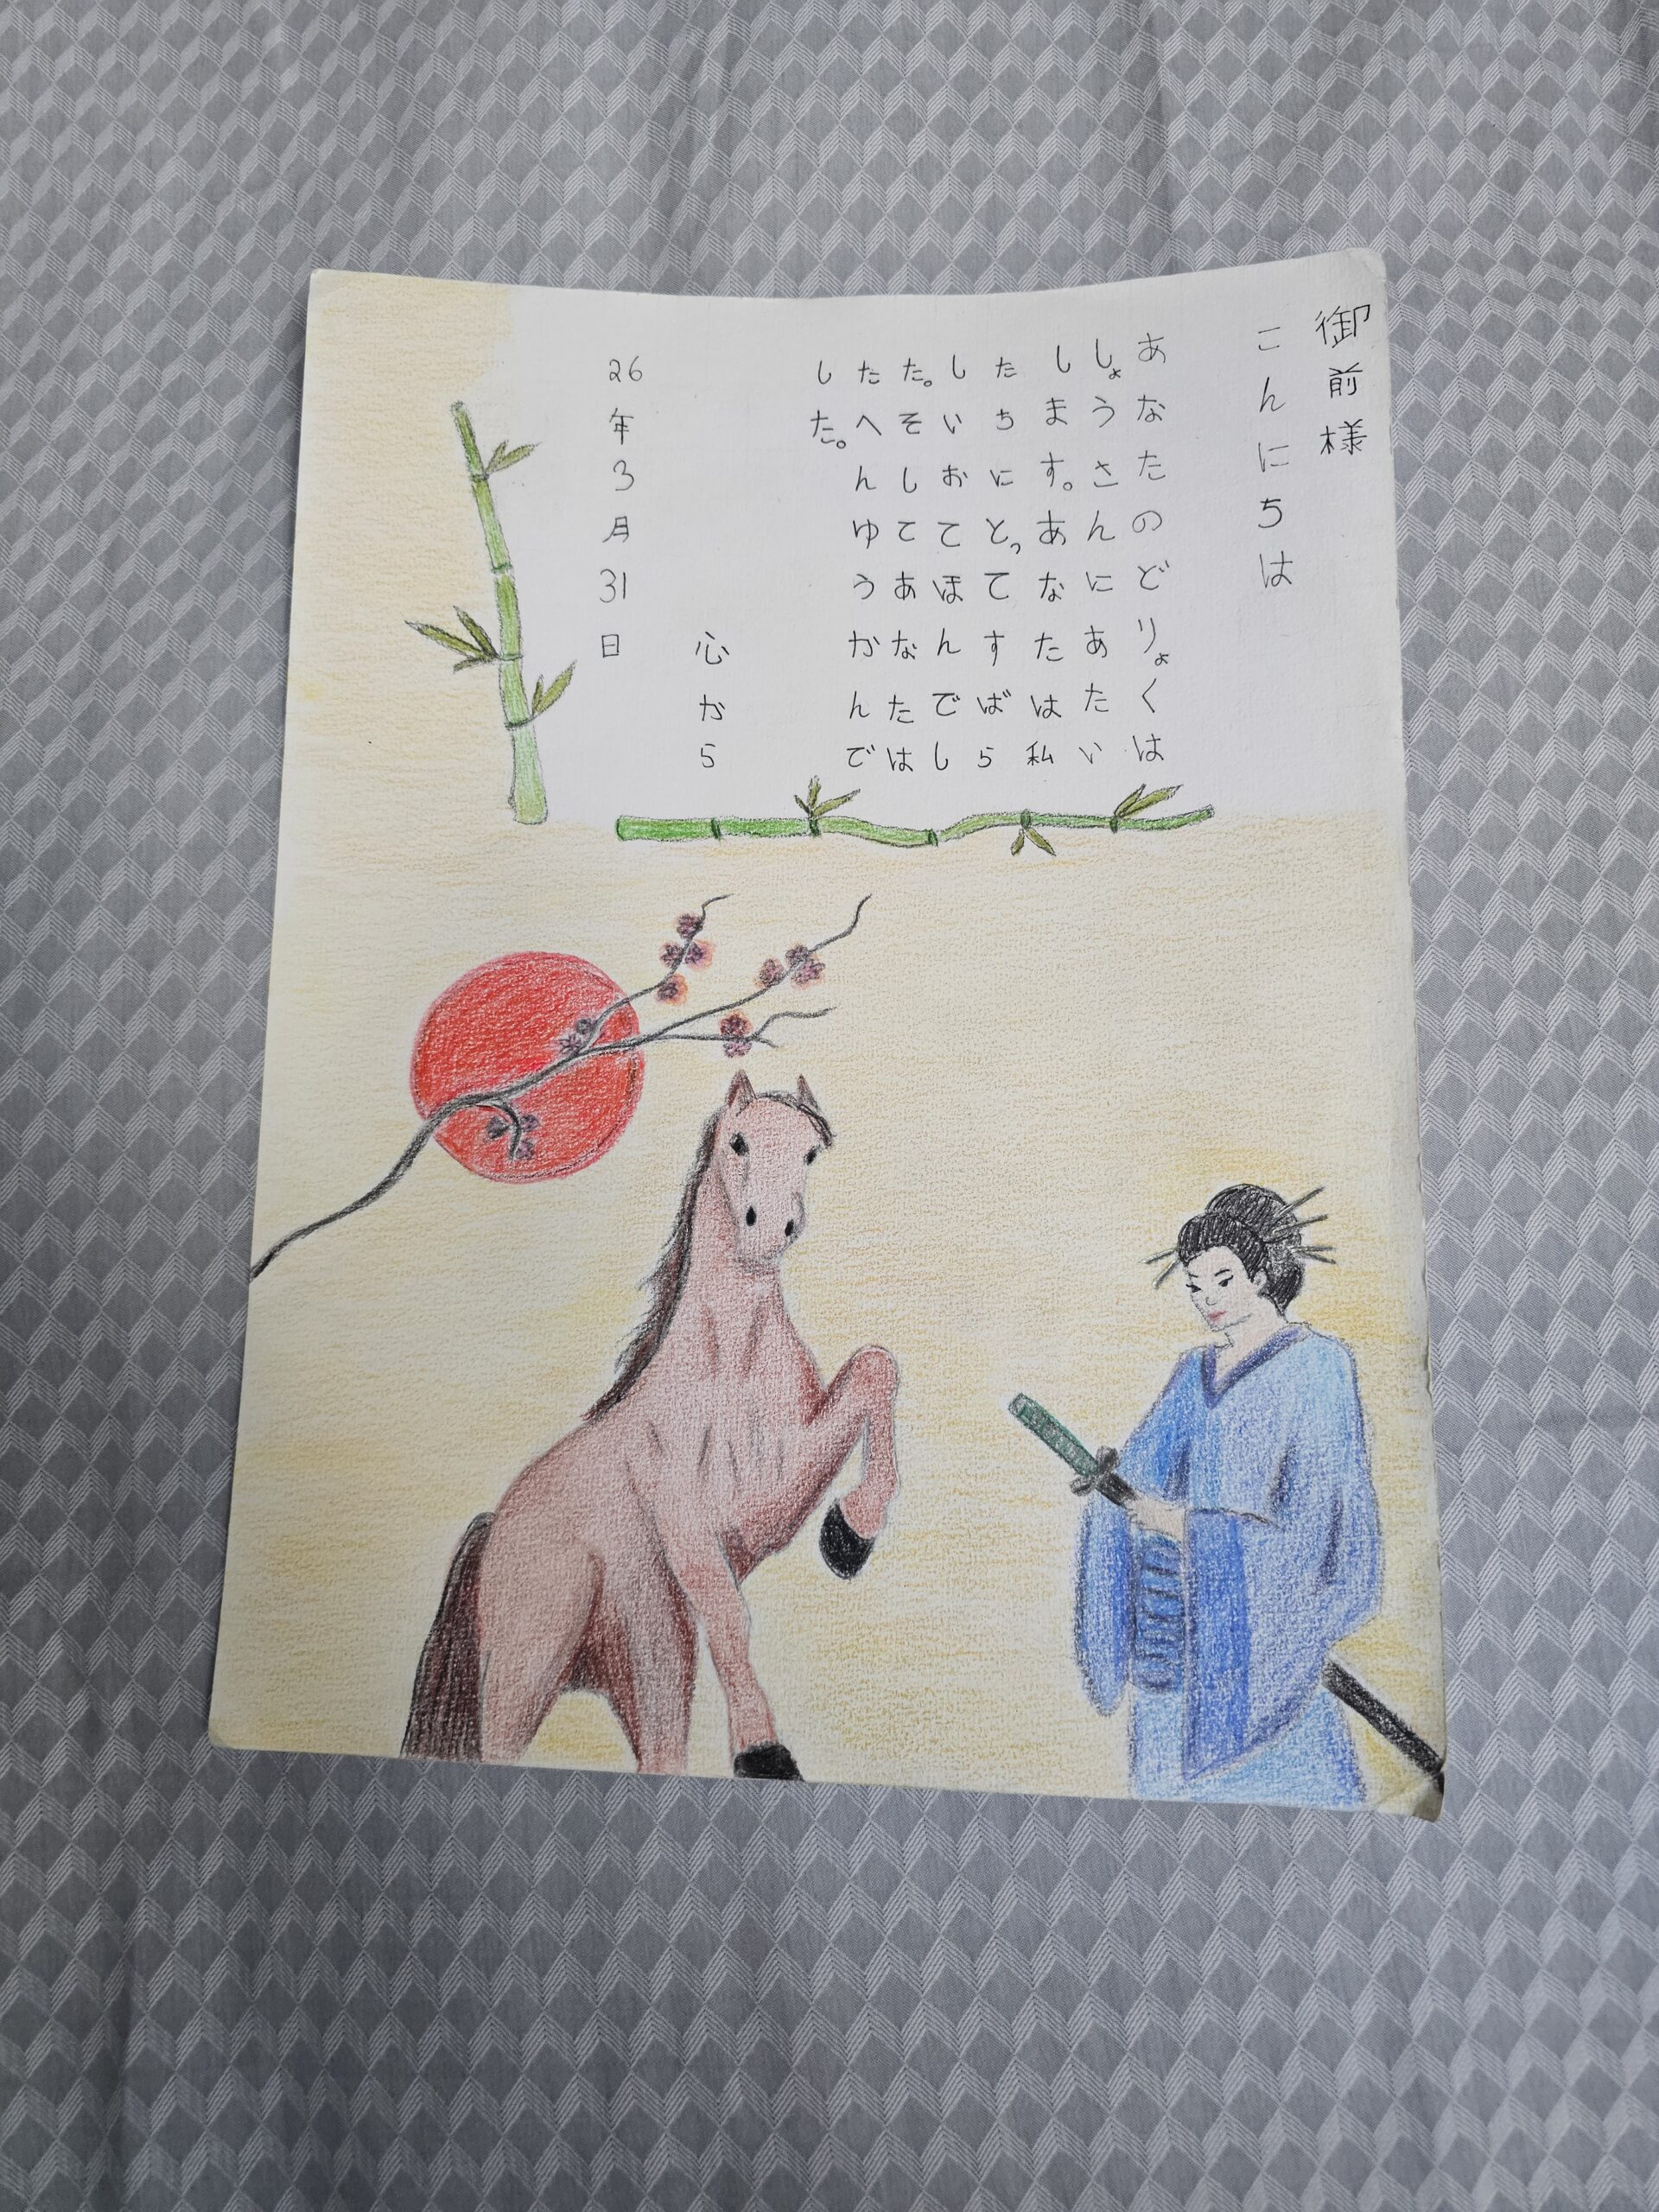 御前様
こんにちは
あなたのどりょくは
しょうさんにあたい
します。あなたは私
たちにとってすばら
しいおてほんでし
た。そしてあなたは
たへんゆうかんで
した。
心から
26年3月31日